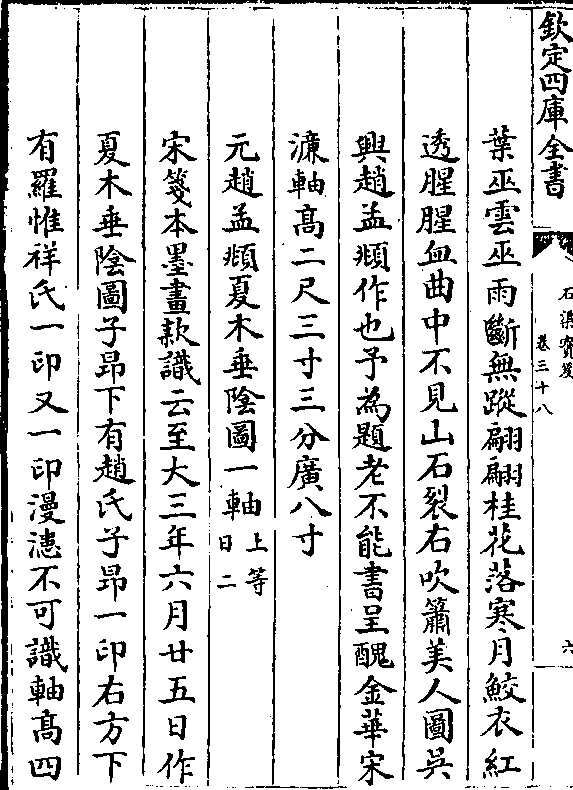 欽定四庫全書
石渠寳笈
卷三十八
六
葉巫雲巫雨斷無蹤翩翩桂花落寒月鮫衣紅
透腥腥血曲中不見山石裂右吹簫美人圖吳
興趙孟頫作也予為題老不能書呈醜金華宋
濂軸高二尺三寸三分廣八寸
元趙孟頫夏木垂陰圖一軸上等
日二
宋箋本墨畫款識云至大三年六月廿五日作
夏木垂陰圖子昂下有趙氏子昂一印右方下
有羅惟祥氏一印又一印漫漶不可識軸高四